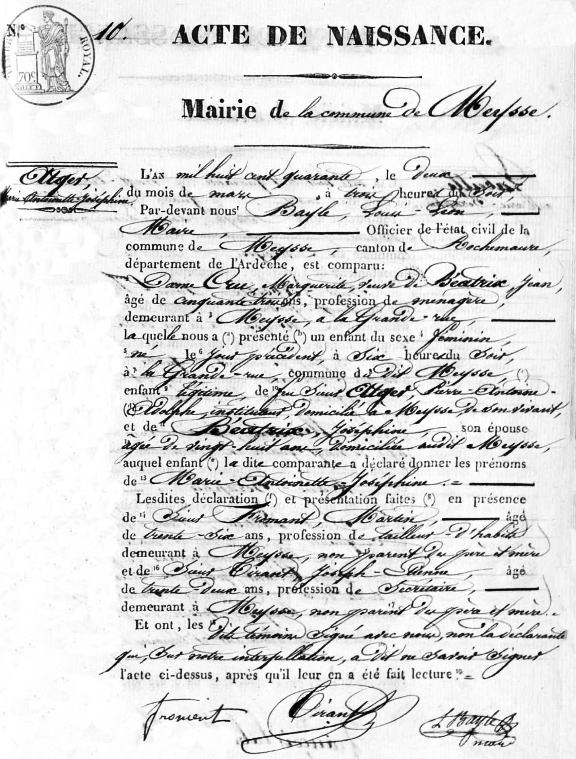 N.º 10. ACTE DE NAISSANCE.
ROYAL.
70c
Mairie de la commune de Meysse.
Atger
Marie Antoinette Joséphine
L'AN mil huit cent quarante, le deux
du mois de mars, à trois heures du soir
Par-devant nous¹ Bayle, Louis-Léon,
Maire Officier de l'état civil de la
commune de Meysse, canton de Rochemaure,
département de l'Ardèche, est comparu:
Dame Cru, Marguerite, veuve de Béatrix, Jean,
âgé de cinquante trois ans, profession de ménagère,
demeurant à ³ Meysse, à la Grande-rue,
laquelle nous a (ᵃ) présenté (ᵇ) un enfant du sexe ⁴ féminin,
⁵ né, le ⁶ jour précédent à six heures du soir,
à ⁷ la Grande-rue, commune de dit Meysse, (ᶜ)
enfant ⁸ légitime, de ¹⁰ feu Sieur Atger Pierre-Antoine-
Adolphe, instituteur, domicilié à Meysse de son vivant,
et de ¹¹ Béatrix, Joséphine, son épouse
âgée de vingt-huit ans, domiciliée audit Meysse,
auquel enfant (ᵉ) la dite comparante a déclaré donner les prénoms
de ¹³ Marie-Antoinette-Joséphine.=
Lesdites déclaration (ᶠ) et présentation faites (ᵍ) en présence
de ¹⁴ Sieur Fromant, Martin, âgé
de trente-six ans, profession de tailleur d'habits
demeurant à Meysse, non parent du père et mère
et de ¹⁶ Sieur Tirant, Joseph-Firmin, âgé
de trente-deux ans, profession de Secrétaire
demeurant à Meysse, non parent du père et mère.
Et ont, les dits témoins signé avec nous, non la déclarante
qui, sur notre interpellation, a dit ne savoir signer
l'acte ci-dessus, après qu'il leur en a été fait lecture.¹⁹=
froment Tirant L Bayle
maire